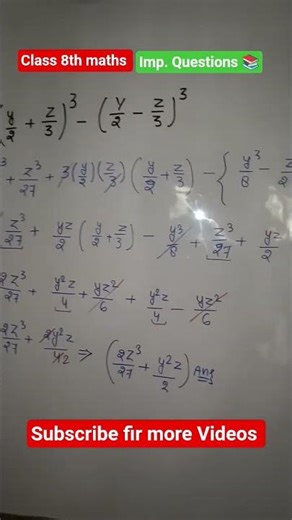 Class 8th maths
Imp. Questions 📚
(y/2 + z/3)³ - (y/2 - z/3)³
³ + z³/27 + 3(y/2)(z/3)(y/2 + z/3) - { y³/8 - z
z³/27 + yz/2 (y/2 + z/3) - y³/8 + z³/27 + yz/2
2z³/27 + y²z/4 + yz²/6 + y²z/4 - yz²/6
2z³/27 + 2y²z/42 ⇒ (2z³/27 + y²z/2) Ans
Subscribe fir more Videos